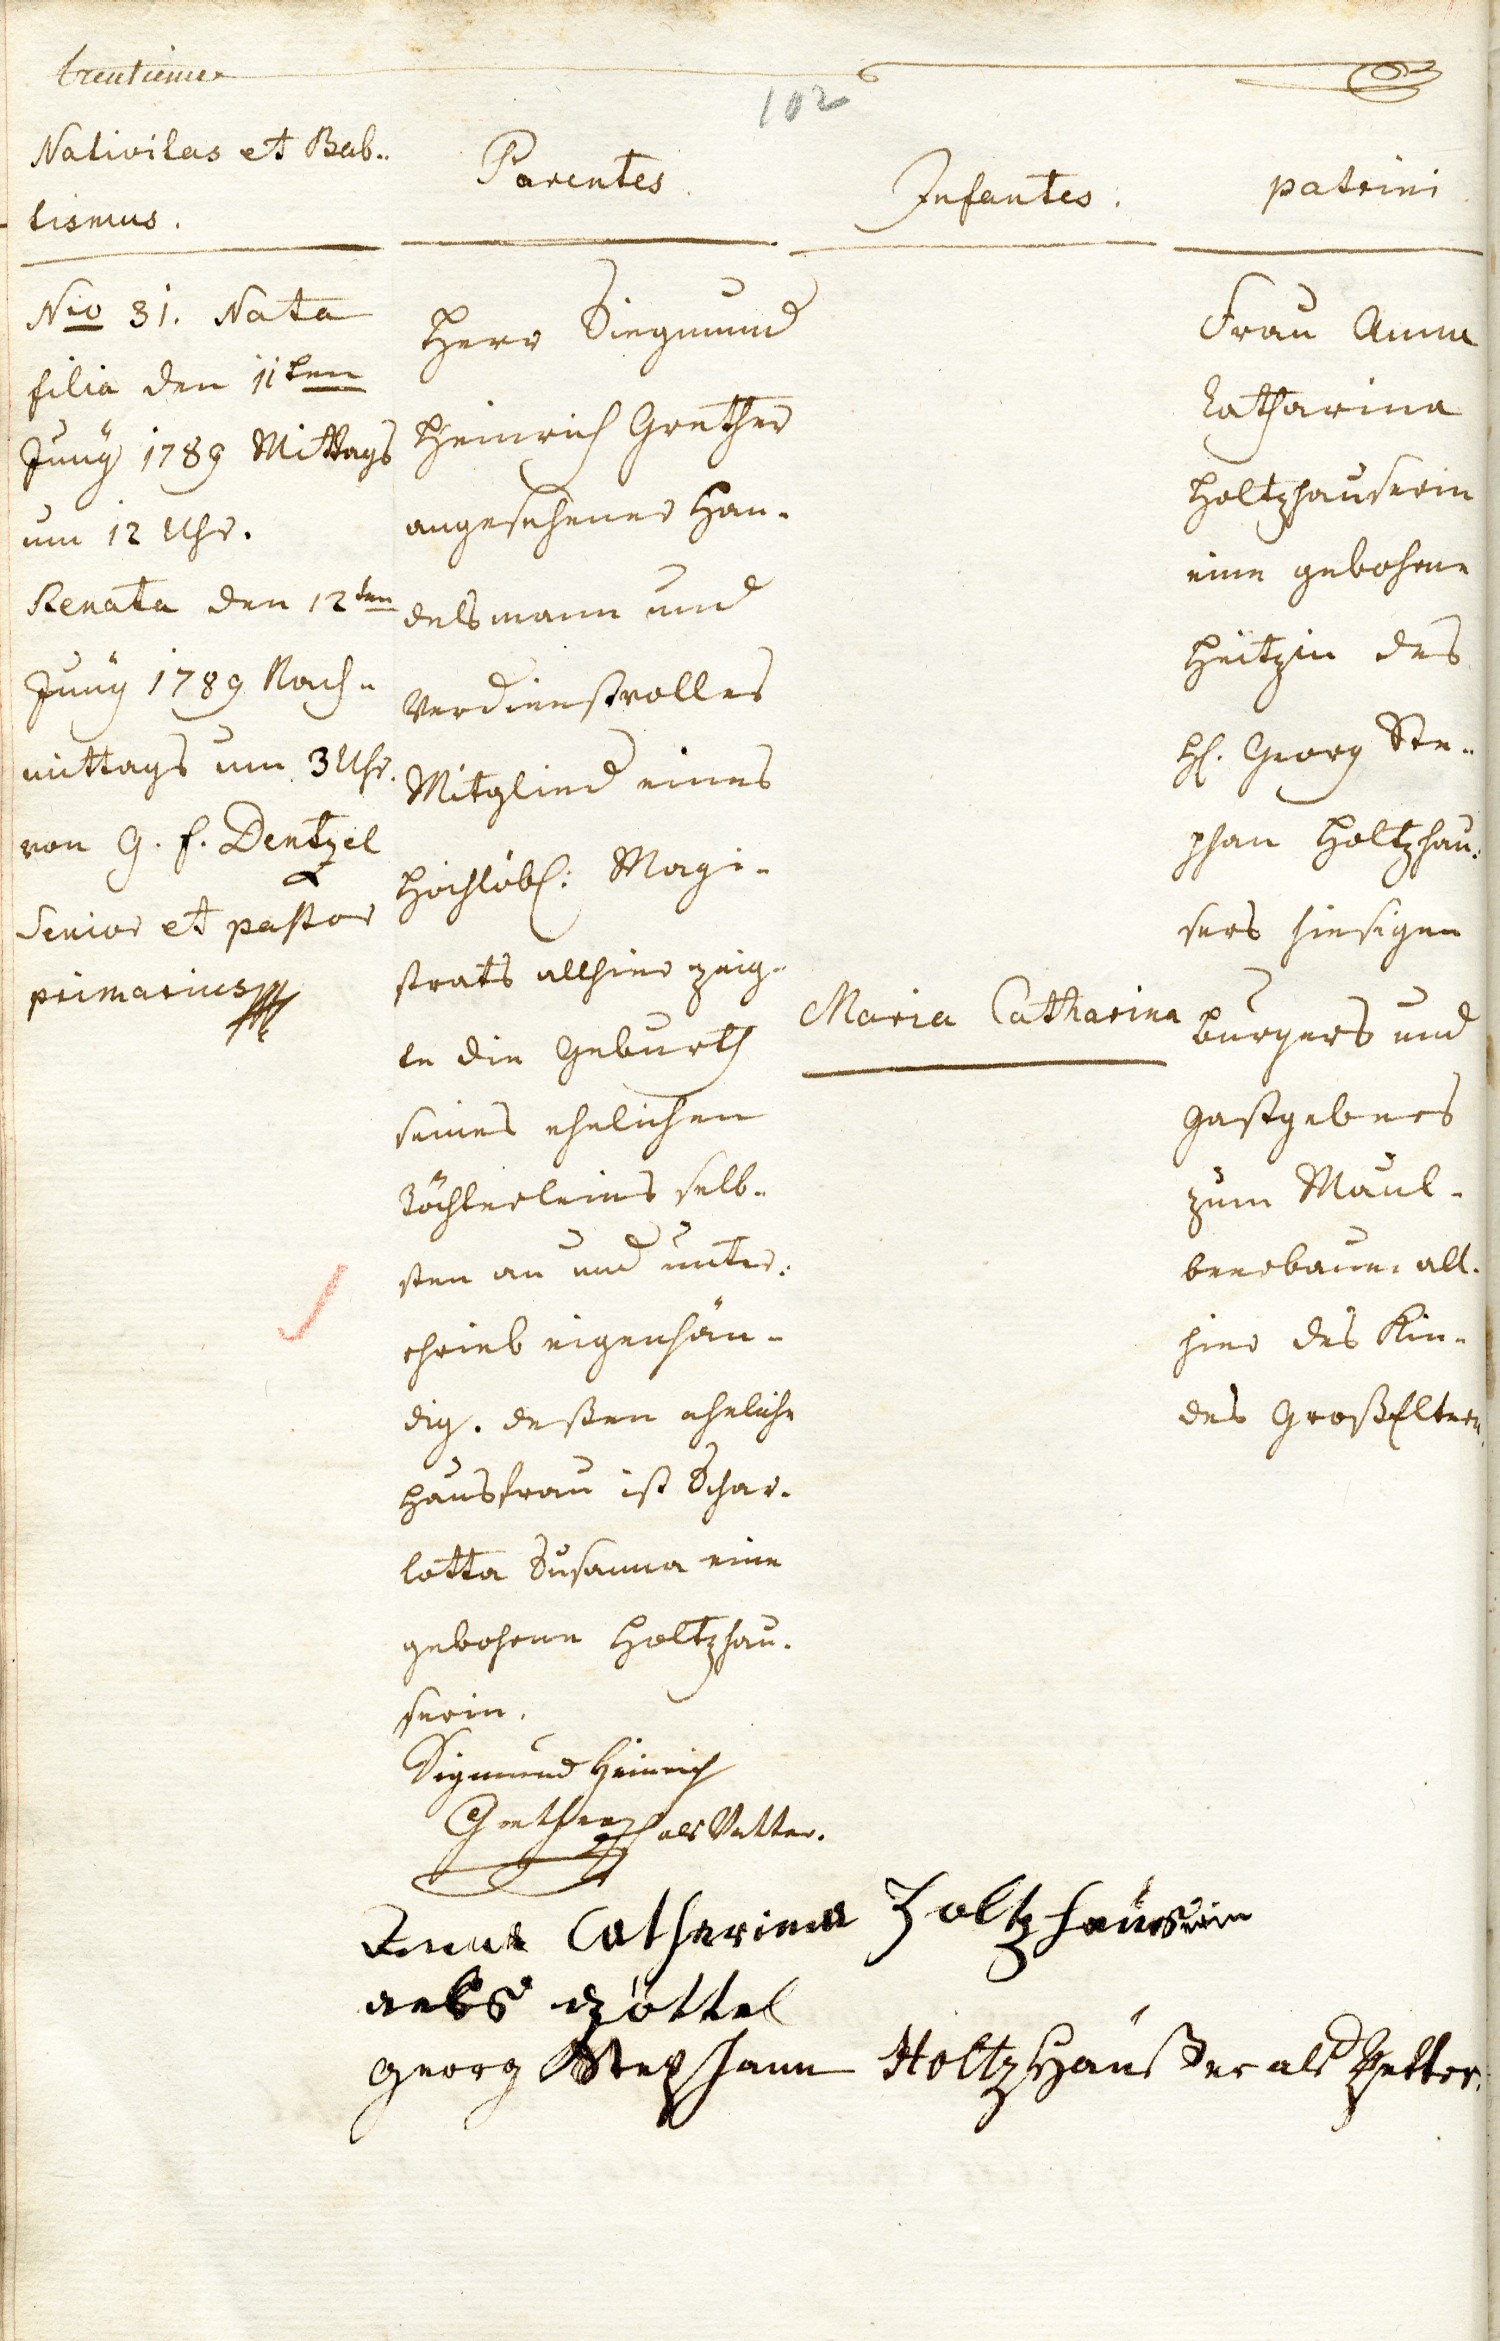 trentieme
102
Nativitas et Bab..
tismus.
Nro 31. Nata
filia den 11ten
Juny 1789 Mittags
um 12 Uhr.
Renata den 12ten
Juny 1789 Nach-
mittags um 3 Uhr.
von G. f. Dentzel
Senior et pastor
primarius
Parentes
Herr Siegmund
Heinrich Grether
angesehener Han-
delsmann und
Verdienstvolles
Mitglied eines
Hochlöbl: Magi-
strats allhier zeig-
te die Geburth
seines ehelichen
Töchterleins selb-
sten an und unter:
schrieb eigenhän-
dig. deßen eheliche
Hausfrau ist Schar-
lotta Susanna eine
gebohrne Holtzhau-
serin.
Sigmund Heinrich
Grether als Vatter.
Infantes:
Maria Catharina
patrini
Frau Anna
Catharina
Holtzhauserin
eine gebohrne
Heitzin des
H. Georg Ste-
phan Holtzhau:
sers hiesigen
Burgers und
Gastgebers
zum Maul-
beerbaum all-
hier des Kin-
des GroßEltern.
Anna Catharina Holtzhäuserin
als göttel
Georg Stephann HoltzHäußer als Petter.